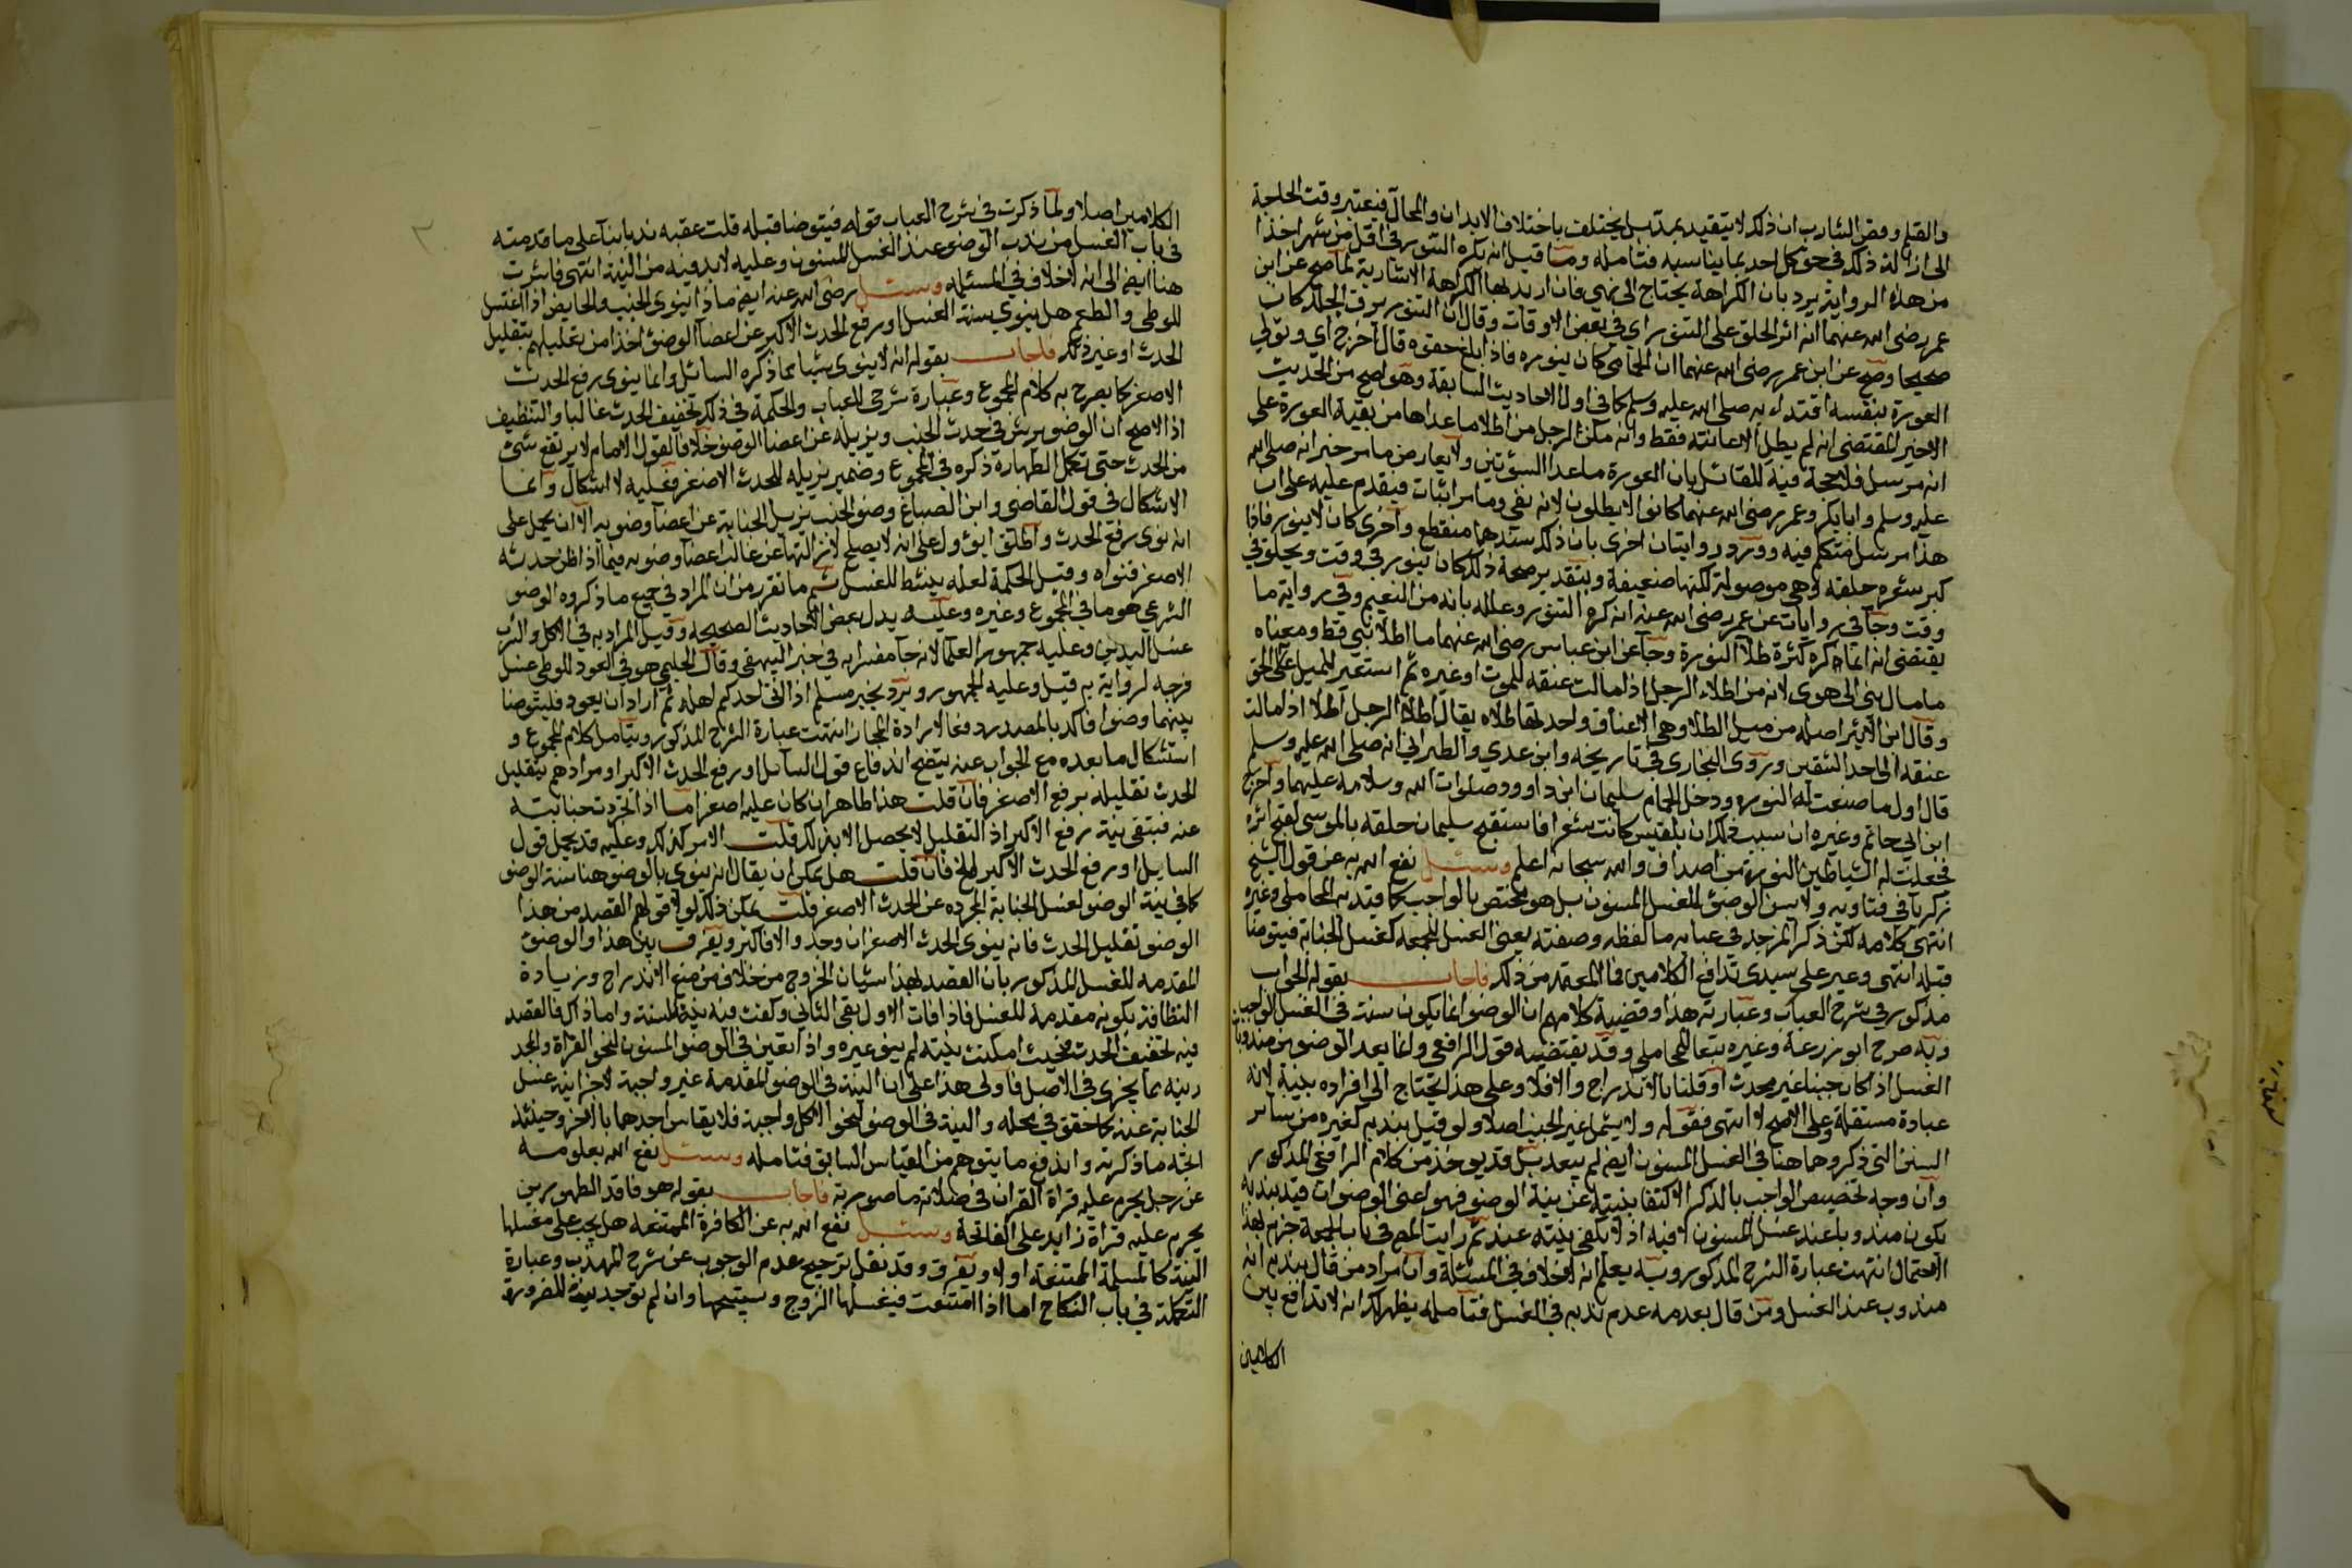 والقلم وقص الشارب ان ذلك لا يتقيد بمدة بل يختلف باختلاف الابدان والمحال فيعتبر وقت الحاجة
الى ازالة ذلك في حق كل احد بما يناسبه فتامله وما قيل انه يكره التنور في اقل من شهر اخذا
من هذه الرواية يرد بان الكراهة يحتاج الى نهي فان اريد بها الكراهة الاشارية لما صح عن ابن
عمر رضي الله عنهما انه اثر الحلق على التنور اي في بعض الاوقات وقال ان التنور يرق الجلد كان
صحيحا وصح عن ابن عمر رضي الله عنهما ان الحمامي كان ينوره فاذا بلغ حقوه قال اخرج اي وتولي
العورة بنفسه اقتداء به صلى الله عليه وسلم كما في اول الاحاديث السابقة وهو اصح من الحديث
الاخير المقتضي انه لم يطل الا عانته فقط وانه مكن الرجل من اطلا ما عداها من بقية العورة على
انه مرسل فلا حجة فيه للقائل بان العورة ما عدا السوءتين ولا يعارض ما مر خبر انه صلى الله
عليه وسلم وابا بكر وعمر رضي الله عنهما كانوا لا يطلون لانه نفي وما مر اثبات فيقدم عليه على ان
هذا مرسل متكلم فيه وورود روايتان اخرى بان ذلك سندهما منقطع واخرى كان لا ينور فاذا
كبر شعره حلقه وهي موصولة لكنها ضعيفة وبتقدير صحة ذلك كان ينور في وقت ويحلق في
وقت وجآ في روايات عن عمر رضي الله عنه انه كره التنور وعلله بانه من النعيم وفي رواية ما
يقتضي انه انما كره كثرة طلآ النورة وجآ عن ابن عباس رضي الله عنهما ما اطلا نبي قط ومعناه
ما مال نبي الى هوى لانه من اطلاء الرجل اذا مالت عنقه للموت او غيره ثم استعير للميل عن الحق
وقال ابن الاثير اصله من ميل الطلا وهي الاعناق واحدتها طلاه يقال اطلا الرجل اطلا اذا مالت
عنقه الى احد الشقين وروى البخاري في تاريخه وابن عدي والطبراني انه صلى الله عليه وسلم
قال اول ما صنعت له النورة ودخل الحمام سليمان ابن داوود صلوات الله وسلامه عليهما واخرج
ابن ابي حاتم وغيره ان سبب ذلك ان بلقيس كانت شعرا فاستقبح سليمان حلقه بالموسى لقبح اثره
فجعلت له الشياطين النورة من اصداف والله سبحانه اعلم وسئل نفع الله به عن قول الشيخ
زكريا في فتاويه ولا يسن الوضوء للغسل المسنون بل هو مختص بالواجب كما قيد به المحاملي وغيره
انتهى كلامه لكن ذكر المزجد في عبابه ما لفظه وصفته يعني الغسل للجمعة كغسل الجنابة فيتوضا
قبله انتهى وعير على سيدي تدافع الكلامين فما المعتمد من ذلك فاجاب بقوله الجواب
مذكور في شرح العباب وعبارته هذا وقضية كلامهم ان الوضو انما يكون سنة في الغسل الواجب
وبه صرح ابو زرعة وغيره تبعا للمحاملي وقد يقتضيه قول الرافعي وانما يعد الوضو من مندوبات
الغسل اذا كان جنبا غير محدث او قلنا بالاندراج والا فلا وعلى هذا يحتاج الى افراده بنية لانه
عبادة مستقلة وعلى الاصح لا انتهى فقوله ولا يشمل غير الجنب اصلا ولو قيل بندبه كغيره من سائر
السنن التي ذكروها هنا في الغسل المسنون ايضا لم يبعد بل قد يوخذ من كلام الرافعي المذكور
وان وجه تخصيص الواجب بالذكر الاكتفا بنيته عن نية الوضو فهو اعني الوضو ان قيد بندبه
يكون مندوبا عند غسل المسنون لا فيه اذ لا تكفي نيته عنه ثم رايت المص في باب الجمعة جزم بهذا
الاحتمال انتهت عبارة الشرح المذكور وبه يعلم انه لا خلاف في المسئلة وان مراد من قال بندبه انه
مندوب عند الغسل ومن قال بعدمه عدم ندبه في الغسل فتامله يظهر لك انه لا تدافع بين
الكلامين
الكلامين اصلا ولما ذكرت في شرح العباب قوله فيتوضا قبله قلت عقبه ندبا بنآ على ما قدمته
في باب الغسل من ندب الوضو عند الغسل المسنون وعليه لا بد فيه من النية انتهى فاشرت
هنا ايضا الى انه لا خلاف في المسئله وسئل رضي الله عنه ايضا ماذا ينوي الجنب والحايض اذا اغتسل
للوطي والطعم هل ينوي سنة الغسل او رفع الحدث الاكبر عن اعضا الوضوء اخذا من تعليلهم بتقليل
الحدث او غير ذلك فاجاب بقوله انه لا ينوي شيا مما ذكره السائل وانما ينوي رفع الحدث
الاصغر كما يصرح به كلام المجموع وعبارة شرحي للعباب والحكمة في ذلك تخفيف الحدث غالبا والتنظيف
اذ الاصح ان الوضو يوثر في حدث الجنب ويزيله عن اعضا الوضو خلافا لقول الامام لا يرتفع شئ
من الحدث حتى تكمل الطهارة ذكره في المجموع وضمير يزيله للحدث الاصغر فعليه لا اشكال وانما
الاشكال في قول القاضي وابن الصباغ وضو الجنب يزيل الجنابة عن اعضآ وضويه الا ان يحمل على
انه نوى رفع الحدث واطلق او يؤول على انه لا يصلح لازالتها عن غالب اعضآ وضويه فيما اذا ظن حدثه
الاصغر فنواه وقيل الحكمة لعله ينشط للغسل ثم ما تقرر من ان المراد في جميع ما ذكروه الوضو
الشرعي هو ما في المجموع وغيره وعليه يدل بعض الاحاديث الصحيحه وقيل المراد به في الاكل والشرب
غسل اليدين وعليه جمهور العلما لانه جآ مفسرا به في خبر البيهقي وقال الحليمي هو في العود للوطي غسل
فرجه لرواية به قيل وعليه الجمهور ويرد بخبر مسلم اذا اتى احدكم اهله ثم اراد ان يعود فليتوضا
بينهما وضوا فاكد بالمصدر دفعا لارادة المجاز انتهت عبارة الشرح المذكور وبتامل كلام المجموع و
استشكال ما بعده مع الجواب عنه يتضح اندفاع قول السآئل او رفع الحدث الاكبر او مرادهم بتقليل
الحدث تقليله برفع الاصغر فان قلت هذا ظاهر ان كان عليه اصغر اما اذا تجردت جنابته
عنه فبتقى نية رفع الاكبر اذ التقليل لا يحصل الا بذلك قلت الامر كذلك وعليه قد يحمل قول
السايل او رفع الحدث الاكبر الخ فان قلت هل يمكن ان يقال انه ينوي بالوضو هنا سنة الوضو
كما في نية الوضو لغسل الجنابة المجرده عن الحدث الاصغر قلت يمكن ذلك لولا قولهم القصد من هذا
الوضو تقليل الحدث فانه ينوي الحدث الاصغر ان وجد والا فاكبر ويفرق بين هذا والوضوء
المقدمه للغسل المذكور بان القصد لهذا شيئان الخروج من خلاف من منع الاندراج وزيادة
النظافة بكونه مقدمة للغسل فاذا فات الاول بقي الثاني وكفت فيه نية السنة واما ذاك فالقصد
فيه تخفيف الحدث فحيث امكنت نيته لم ينو غيره واذا تعين في الوضو المسنون لنحو القراة والمجد
دينه بما يجزي في الاصل فاولى هذا على ان النية في الوضو المقدمة غير واجبة لاجزا نية غسل
الجنابة عنه كما حقق في محله والنية في الوضو لنحو الاكل واجبة فلا يقاس احدها بالاخر وحينئذ
اتجه ما ذكرته واندفع ما يتوهم من القياس السابق فتامله وسئل نفع الله بعلومه
عن رجل يحرم عليه قراة القران في صلاته ما صورته فاجاب بقوله هو فاقد الطهورين
يحرم عليه قراة زايد على الفاتحة وسئل نفع الله به عن الكافرة الممتنعه هل يجب على مغسلها
النية كالمسلمة الممتنعة اولا ويفرق وقد نقل ترجيح عدم الوجوب عن شرح المهذب وعبارة
التكملة في باب النكاح اما اذا امتنعت فيغسلها الزوج ويستبيحها وان لم توجد نية للضرورة